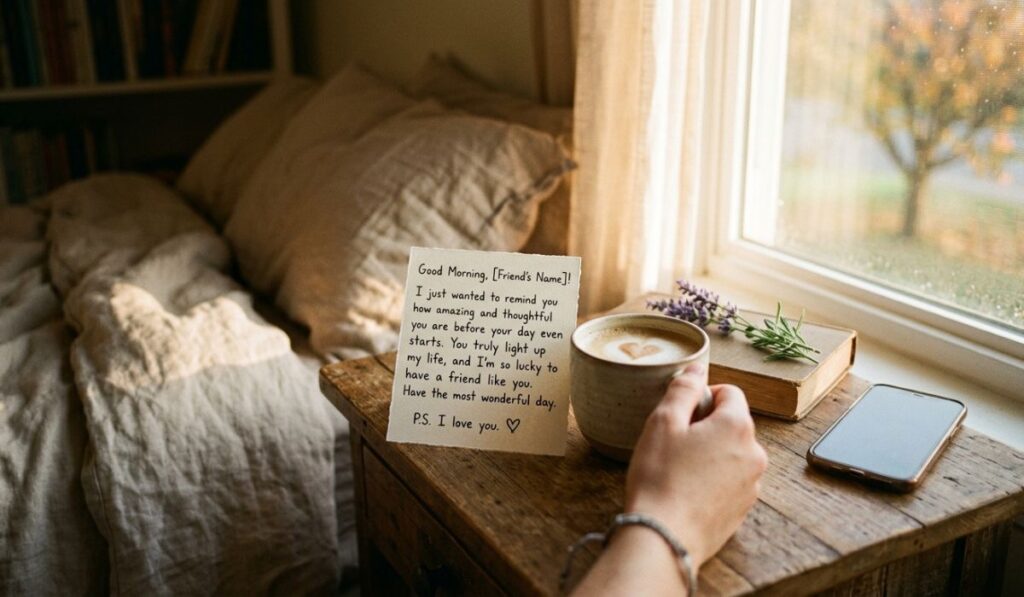 Good Morning, [Friend's Name]!
I just wanted to remind you
how amazing and thoughtful
you are before your day even
starts. You truly light up
my life, and I'm so lucky to
have a friend like you.
Have the most wonderful day.
P.S. I love you. ♡